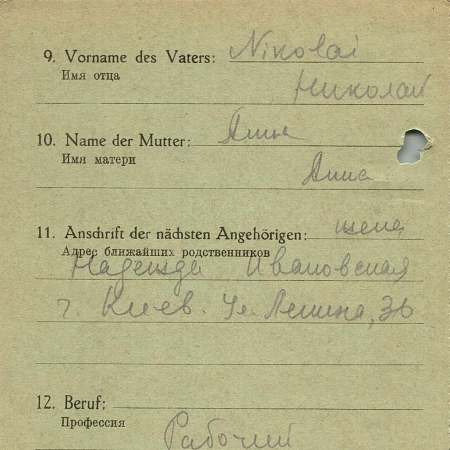 9. Vorname des Vaters: Nikolai
Имя отца
Николай
10. Name der Mutter: Анна
Имя матери
Анна
11. Anschrift der nächsten Angehörigen: жена
Адрес ближайших родственников
Надежда Ивановская
г. Киев. Ул Ленина, 36
12. Beruf:
Профессия
Рабочий